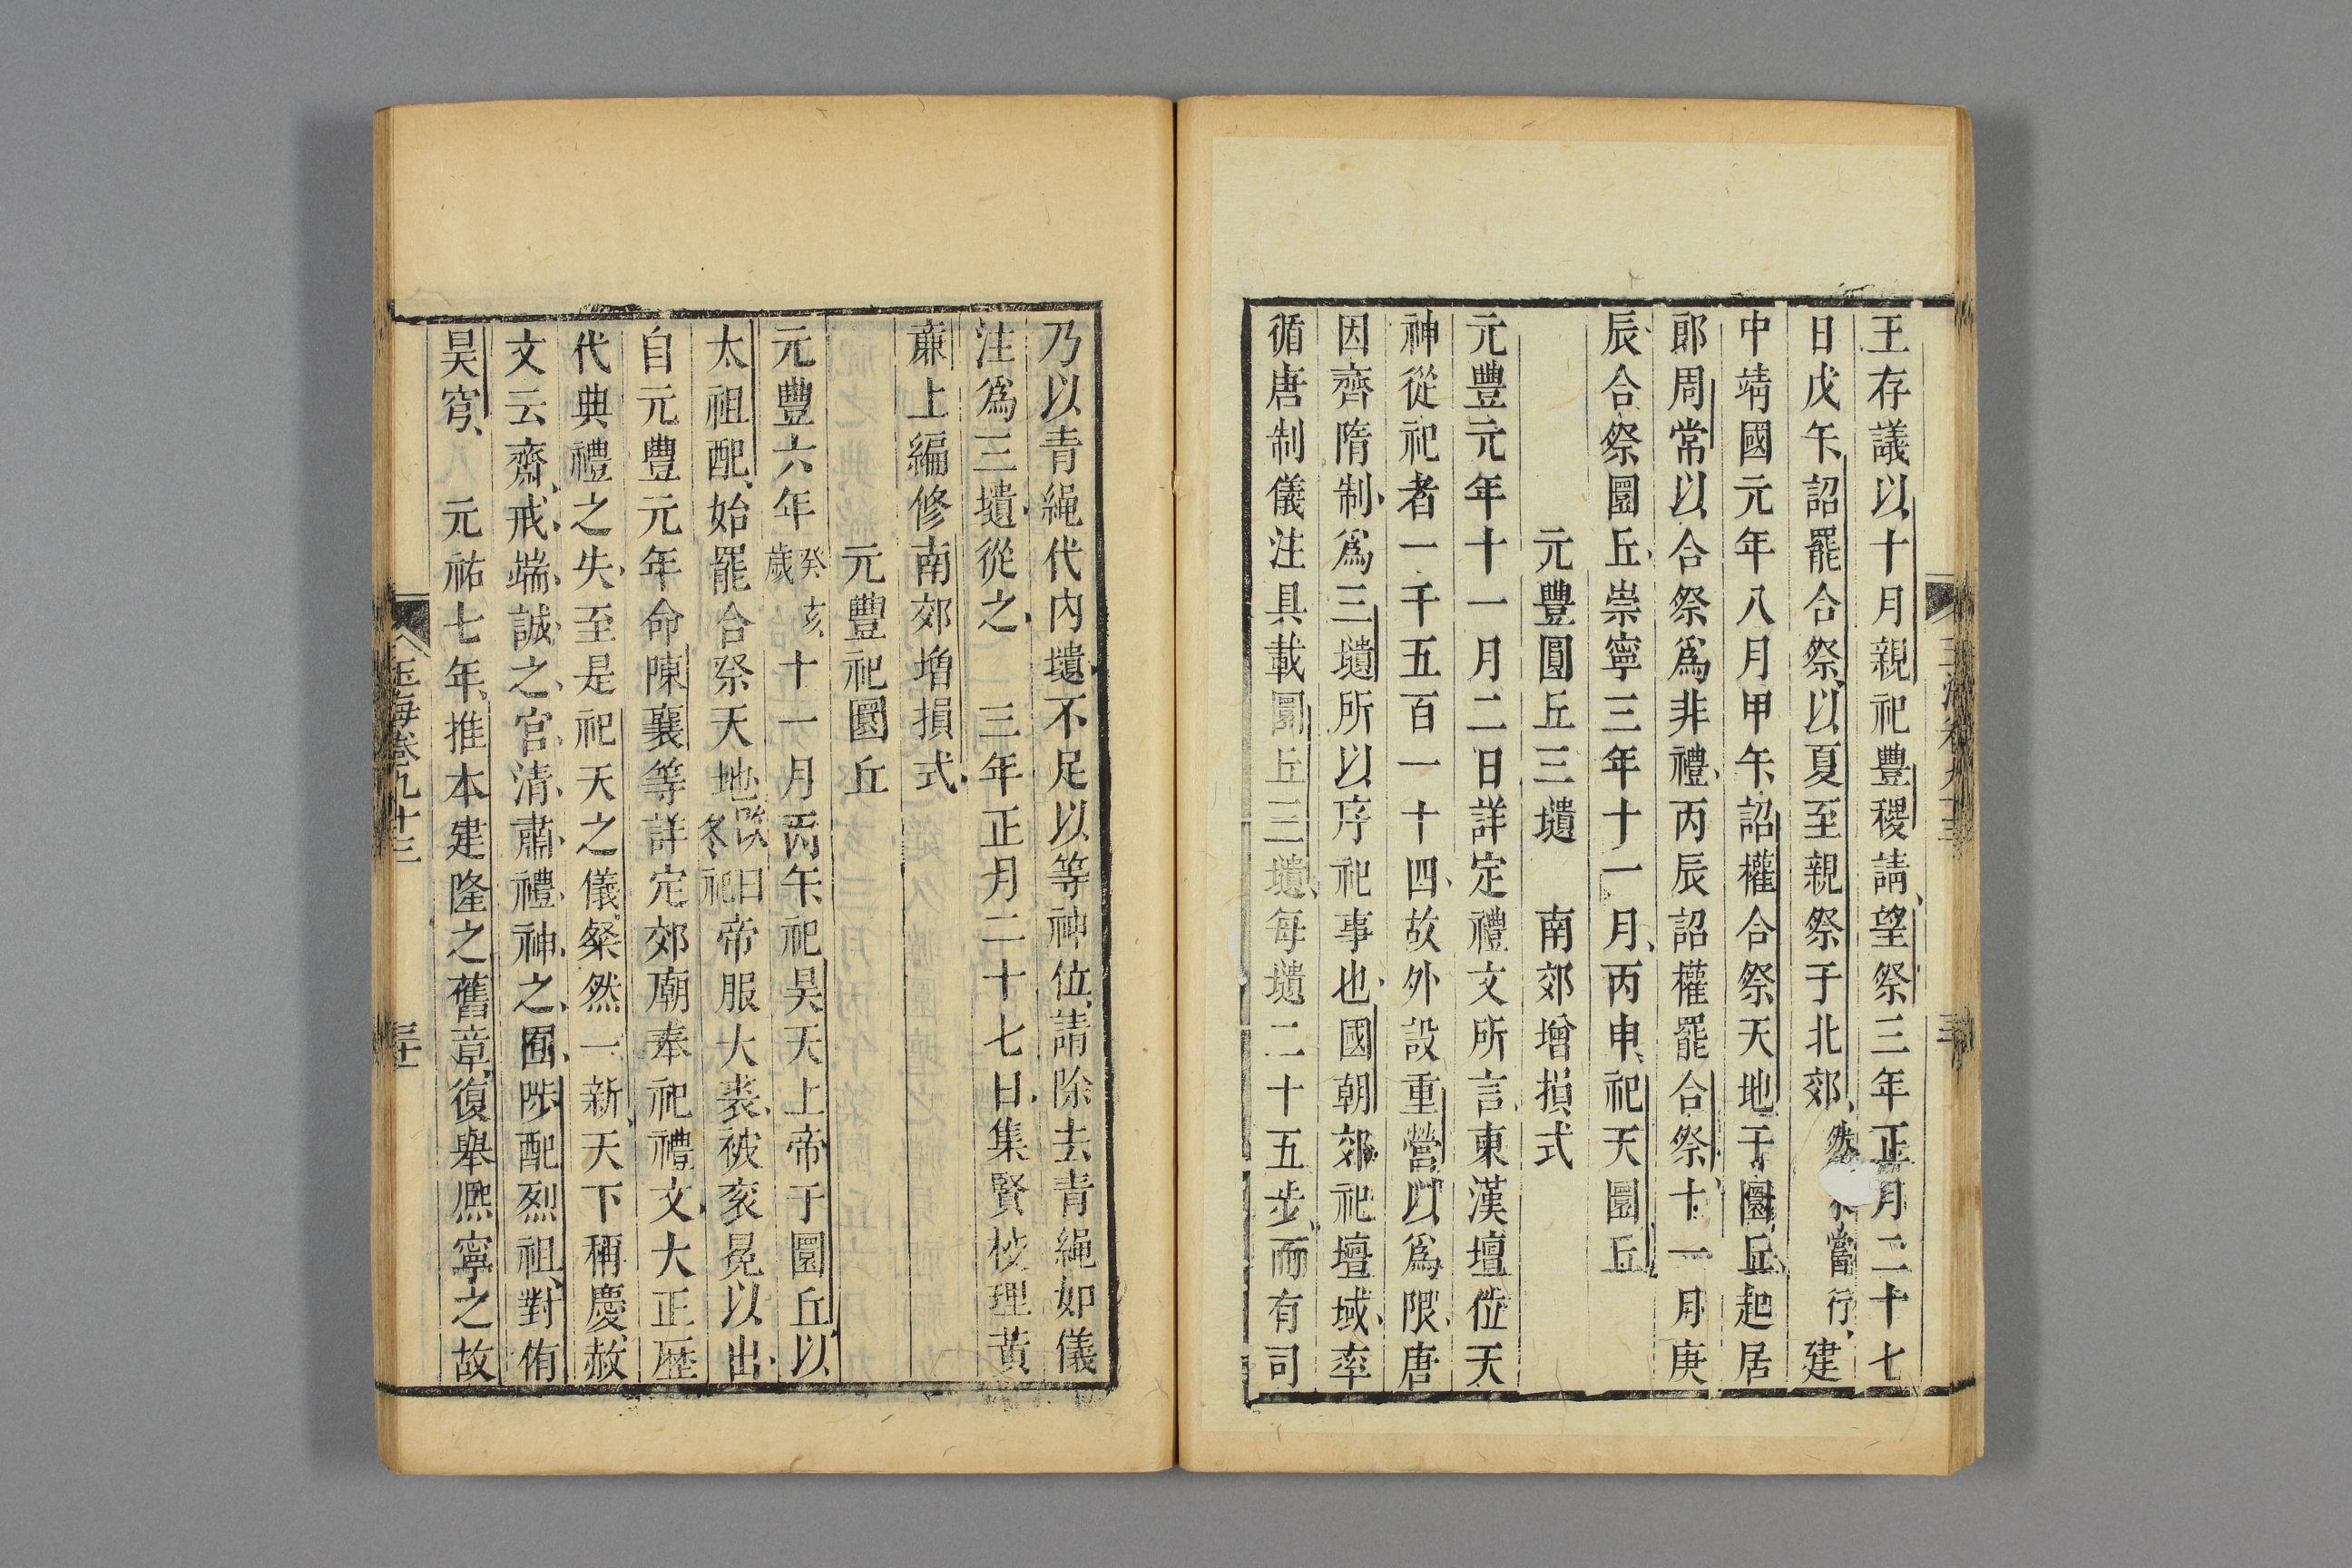 王存議以十月親祀豐稷請望祭三年正月二十七
日戊午詔罷合祭以夏至親祭于北郊然當行建
中靖國元年八月甲午詔權合祭天地于圜丘起居
郎周常以合祭爲非禮丙辰詔權罷合祭十一月庚
辰合祭圜丘崇寧三年十一月丙申祀天圜丘
元豐圓丘三壝 南郊增損式
元豐元年十一月二日詳定禮文所言東漢壇位天
神從祀者一千五百一十四故外設重營以爲限唐
因齊隋制爲三壝所以序祀事也國朝郊祀壇域率
循唐制儀注具載圜丘三壝每壝二十五步而有司
乃以青繩代内壝不足以等神位請除去青繩如儀
注爲三壝從之 三年正月二十七日集賢校理黃
廉上編修南郊增損式
元豐祀圜丘
元豐六年癸亥歲十一月丙午祀昊天上帝于圜丘以
太祖配始罷合祭天地改日冬祀帝服大裘被衮冕以出
自元豐元年命陳襄等詳定郊廟奉祀禮文大正歷
代典禮之失至是祀天之儀粲然一新天下稱慶赦
文云齋戒端誠之官清肅禮神之囿陟配烈祖對侑
昊穹 元祐七年推本建隆之舊章復舉熈寧之故
玉海卷九十三